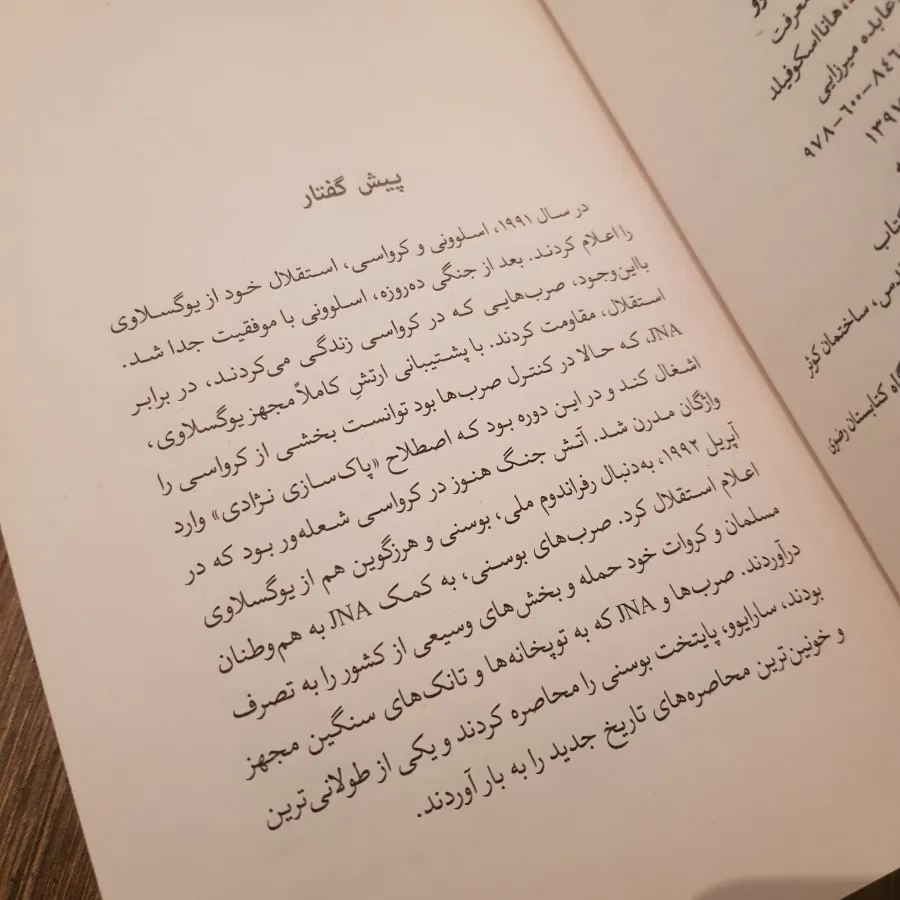 معرفت
هانا اسکوفیلد
عابده میرزایی
۹۷۸-۶۰۰-۸۴۶
۱۳۹۷
کتاب
ساختمان کوثر
کتابستان رضوی
پیش گفتار
در سال ۱۹۹۱، اسلوونی و کرواسی، استقلال خود از یوگسلاوی
را اعلام کردند. بعد از جنگی ده‌روزه، اسلوونی با موفقیت جدا شد.
بااین‌وجود، صرب‌هایی که در کرواسی زندگی می‌کردند، در برابر
استقلال، مقاومت کردند. با پشتیبانی ارتشِ کاملاً مجهز یوگسلاوی،
JNA، که حالا در کنترل صرب‌ها بود توانست بخشی از کرواسی را
اشغال کند و در این دوره بود که اصطلاح «پاک‌سازی نژادی» وارد
واژگان مدرن شد. آتش جنگ هنوز در کرواسی شعله‌ور بود که در
آپریل ۱۹۹۲، به‌دنبال رفراندوم ملی، بوسنی و هرزگوین هم از یوگسلاوی
اعلام استقلال کرد. صرب‌های بوسنی، به کمک JNA به هم‌وطنان
مسلمان و کروات خود حمله و بخش‌های وسیعی از کشور را به تصرف
درآوردند. صرب‌ها و JNA که به توپخانه‌ها و تانک‌های سنگین مجهز
بودند، سارایوو، پایتخت بوسنی را محاصره کردند و یکی از طولانی‌ترین
و خونین‌ترین محاصره‌های تاریخ جدید را به بار آوردند.